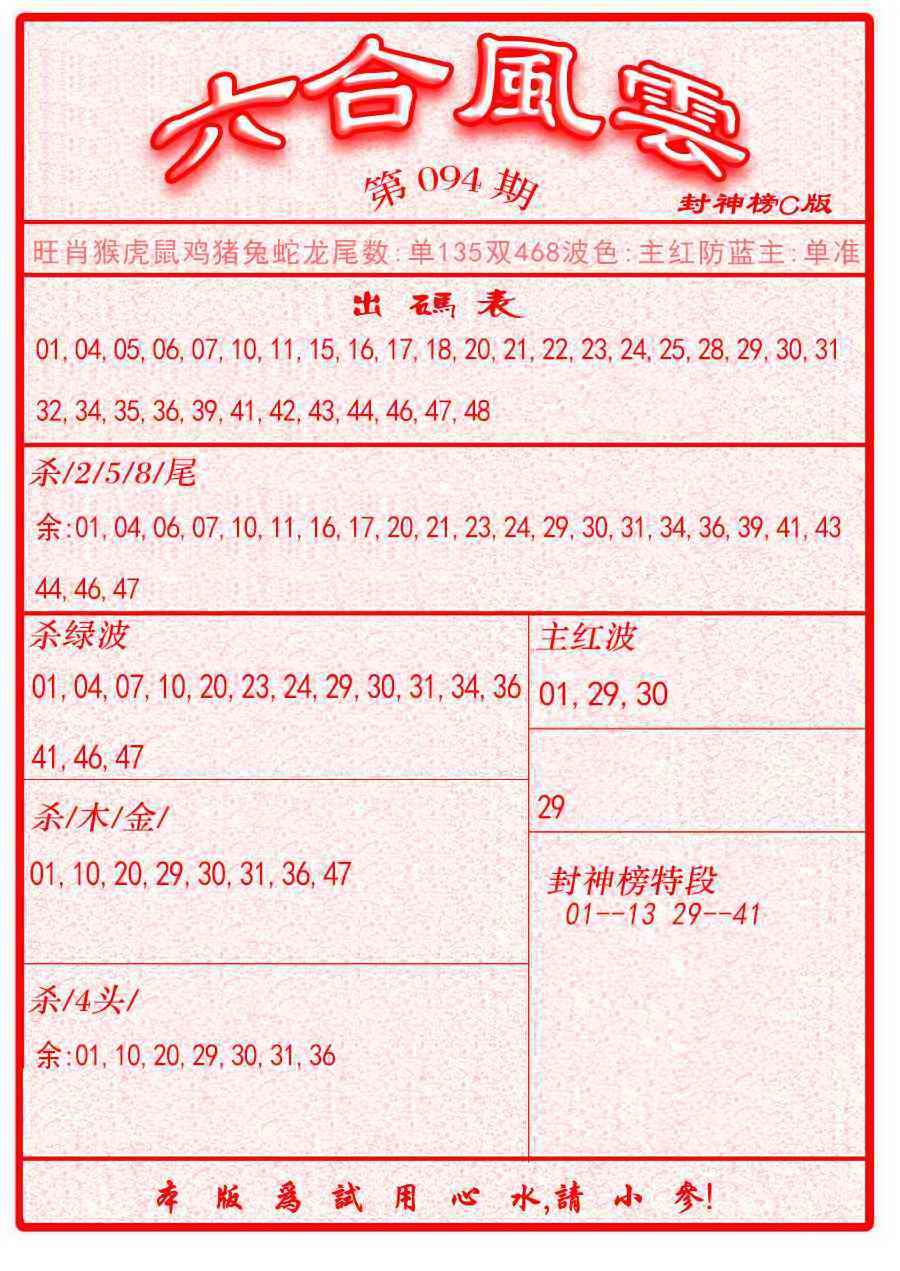 六合風雲
第094期
封神榜C版
旺肖猴虎鼠鸡猪兔蛇龙尾数:单135双468波色:主红防蓝主:单准
出碼表
01,04,05,06,07,10,11,15,16,17,18,20,21,22,23,24,25,28,29,30,31
32,34,35,36,39,41,42,43,44,46,47,48
杀/2/5/8/尾
余:01,04,06,07,10,11,16,17,20,21,23,24,29,30,31,34,36,39,41,43
44,46,47
杀绿波
01,04,07,10,20,23,24,29,30,31,34,36
41,46,47
杀/木/金/
01,10,20,29,30,31,36,47
杀/4头/
余:01,10,20,29,30,31,36
主红波
01,29,30
29
封神榜特段
01--13 29--41
本版爲試用心水,請小參!